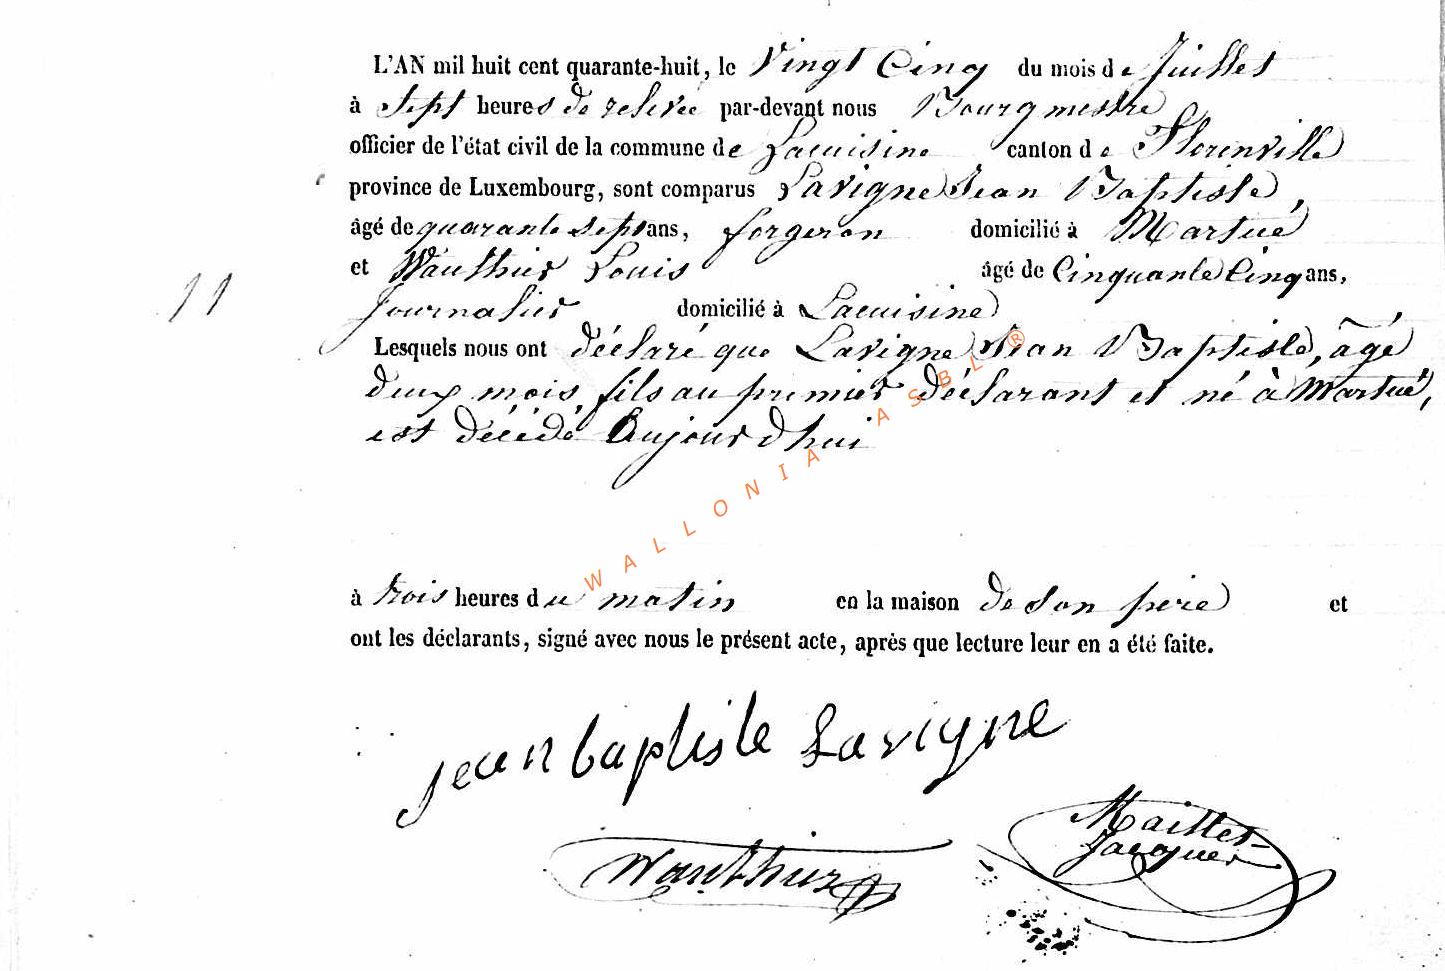 L'AN mil huit cent quarante-huit, le Vingt Cinq du mois de Juillet
à Sept heures de relevée par-devant nous Bourgmestre
officier de l'état civil de la commune de Lacuisine canton de Florinville
province de Luxembourg, sont comparus Lavigne Jean Baptiste,
âgé de quarante sept ans, forgeron domicilié à Martué
et Wauthier Louis âgé de Cinquante Cinq ans,
11
Journalier domicilié à Lacuisine
Lesquels nous ont déclaré que Lavigne Jean Baptiste, âgé
deux mois, fils au premier déclarant et né à Martué,
est décédé Aujourd'hui
WALLONIA ASBL ®
à trois heures du matin en la maison de son père et
ont les déclarants, signé avec nous le présent acte, après que lecture leur en a été faite.
jean baptiste Lavigne
Maillet
Jacques
Wauthier